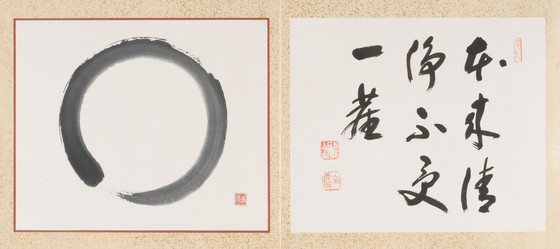 本来清
浄不受
一塵